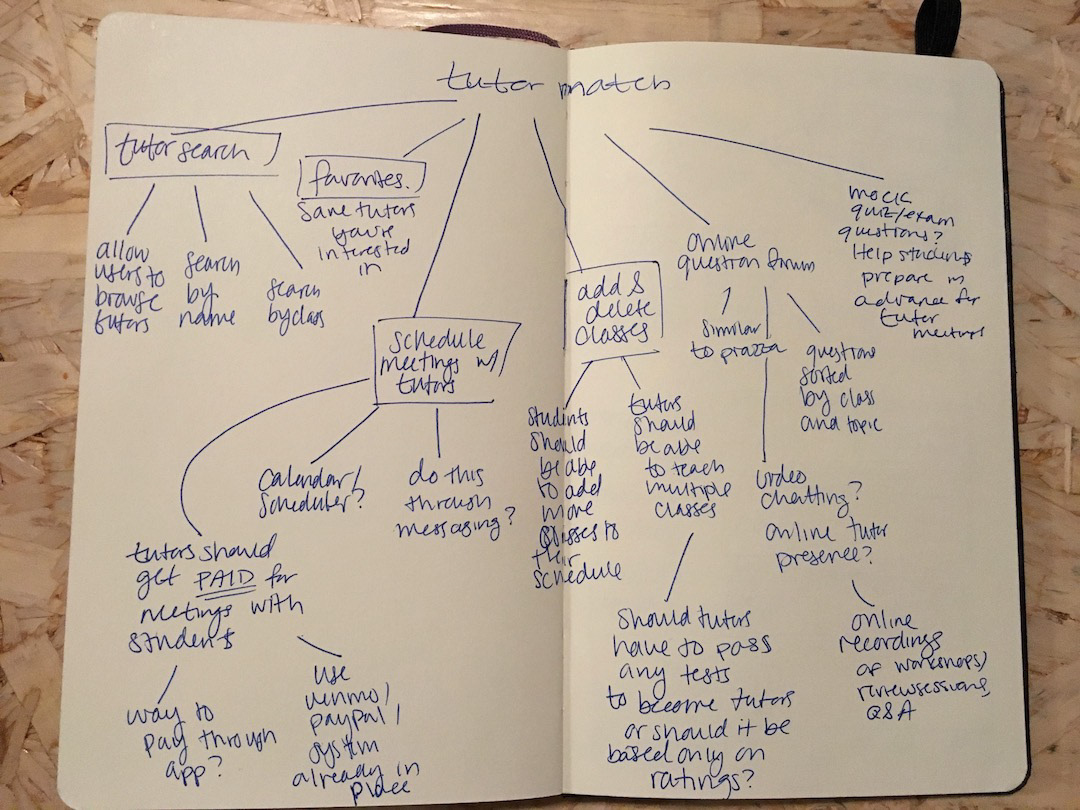 tutor match
tutor search
allow
users to
browse
tutors
search
by
name
search
by class
favorites.
save tutors
you're
interested
in
schedule
meetings w/
tutors
tutors should
get PAID for
meetings with
students
way to
pay through
app?
use
venmo/
paypal/
system
already in
place
calendar/
scheduler?
do this
through
messaging?
add &
delete
classes
students
should
be able
to add
more
classes to
their
schedule
tutors
should
be able
to teach
multiple
classes
should tutors
have to pass
any tests
to become tutors
or should it be
based only on
ratings?
online
question forum
similar
to piazza
video
chatting?
online tutor
presence?
online
recordings
of workshops/
review sessions,
Q&A
questions
sorted
by class
and topic
mock
quiz/exam
questions?
Help students
prepare in
advance for
tutor
meetings